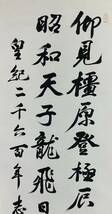 仰見橿原登極辰
昭和天子龍飛日
皇紀二千六百年志